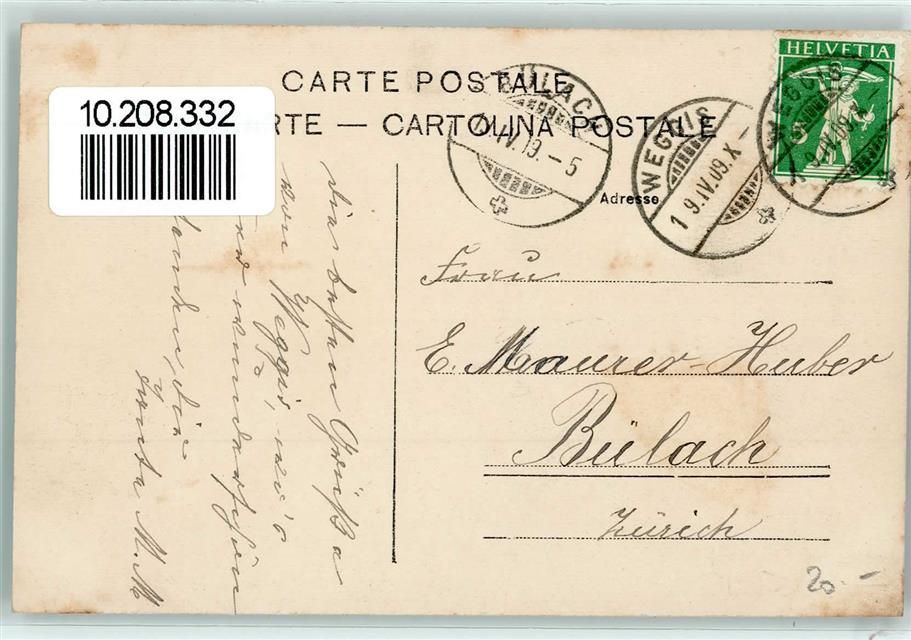 HELVETIA
CARTE POSTALE
10.208.332
RTE — CARTOLINA POSTALE
BÜLACH
IV.19.-5
WEGGIS
19.IV.09.X
WEGGIS
9.IV.09.X
Adresse
Frau
E. Maurer-Huber
Bülach
Zürich
Die besten Grüsse
von Weggis, wo's
wunderschön
M. M
20.-